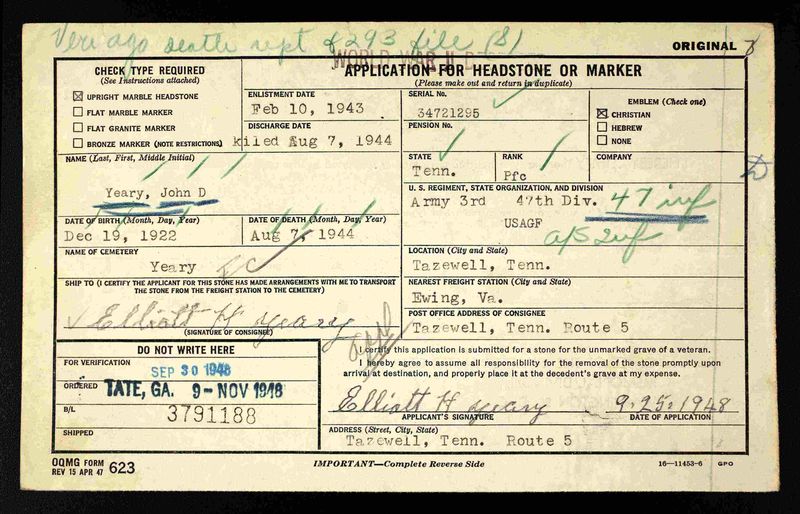 Veri ago death rept & 293 file (S)
WORLD WAR II
ORIGINAL
CHECK TYPE REQUIRED
(See Instructions attached)
☒ UPRIGHT MARBLE HEADSTONE
☐ FLAT MARBLE MARKER
☐ FLAT GRANITE MARKER
☐ BRONZE MARKER (NOTE RESTRICTIONS)
APPLICATION FOR HEADSTONE OR MARKER
(Please make out and return in duplicate)
ENLISTMENT DATE
Feb 10, 1943
DISCHARGE DATE
killed Aug 7, 1944
SERIAL No.
34721295
PENSION No.
EMBLEM (Check one)
☒ CHRISTIAN
☐ HEBREW
☐ NONE
NAME (Last, First, Middle Initial)
Yeary, John D
STATE
Tenn.
RANK
Pfc
COMPANY
D
U. S. REGIMENT, STATE ORGANIZATION, AND DIVISION
Army 3rd 47th Div. 47 inf
USAGF
A/S Inf
DATE OF BIRTH (Month, Day, Year)
Dec 19, 1922
DATE OF DEATH (Month, Day, Year)
Aug 7, 1944
NAME OF CEMETERY
Yeary
LOCATION (City and State)
Tazewell, Tenn.
SHIP TO (I CERTIFY THE APPLICANT FOR THIS STONE HAS MADE ARRANGEMENTS WITH ME TO TRANSPORT
THE STONE FROM THE FREIGHT STATION TO THE CEMETERY)
Elliott H Yeary
(SIGNATURE OF CONSIGNEE)
NEAREST FREIGHT STATION (City and State)
Ewing, Va.
POST OFFICE ADDRESS OF CONSIGNEE
Tazewell, Tenn. Route 5
DO NOT WRITE HERE
FOR VERIFICATION
SEP 30 1948
ORDERED
TATE, GA. 9-NOV 1948
B/L
3791188
SHIPPED
I certify this application is submitted for a stone for the unmarked grave of a veteran.
I hereby agree to assume all responsibility for the removal of the stone promptly upon
arrival at destination, and properly place it at the decedent's grave at my expense.
Elliott H Yeary 9-25-1948
APPLICANT'S SIGNATURE DATE OF APPLICATION
ADDRESS (Street, City, State)
Tazewell, Tenn. Route 5
OQMG FORM 623
REV 15 APR 47
IMPORTANT—Complete Reverse Side
16—11453-6 GPO